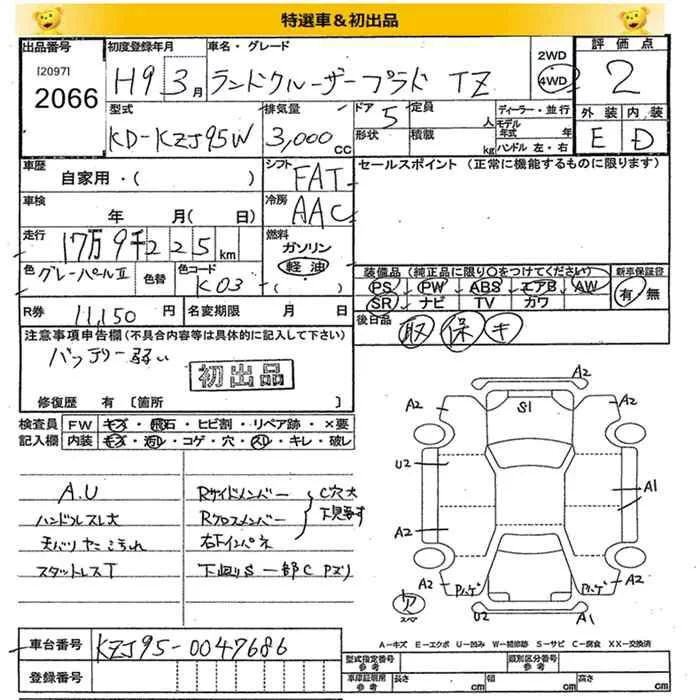 特選車&初出品
出品番号
[2097]
2066
初度登録年月
H9 3月
車名・グレード
ランドクルーザープラド TZ
2WD
4WD
評価点
2
型式
KD-KZJ95W
排気量
3,000
CC
ドア 5
形状
定員
人
積載
kg
ディーラー・並行
モデル年式 年
ハンドル 左・右
外装 内装
E D
車歴
自家用・( )
シフト
FAT
セールスポイント (正常に機能するものに限ります)
車検
年 月( )
冷房
AAC
走行
17万9千225 km
燃料
ガソリン
軽油
色
グレーパールII
色替
色コード
K03
装備品 (純正品に限り○をつけてください)
PS PW ABS エアB AW
SR ナビ TV カワ
新車保証書
有・無
R券 11,150 円
名変期限 月 日
後日品
取 保 キ
注意事項申告欄(不具合内容等は具体的に記入して下さい)
バッテリー弱い
初出品
修復歴 有 〔箇所 〕
検査員記入欄
FW キズ・飛石・ヒビ割・リペア跡・×要
内装 キズ・汚レ・コゲ・穴・スレ・キレ・破レ
A.U
ハンドルスレ大
天バリヤニこうれ
スタットレスT
Rサイドメンバー
Rクロスメンバー
C穴大
右下インパネ
下廻りS 一部C Pズリ
A2
A2
S1
A2
U2
A1
A2
A2
Pハゲ
Pハゲ
A2
ア
スペア
U2
A1
A-キズ E-エクボ U-凹み W-補修跡 S-サビ C-腐食 XX-交換済
車台番号
KZJ95-0047686
登録番号
型式指定番号
参考
類別区分番号
参考
車庫証明用
参考
長さ cm
幅 cm
高さ cm